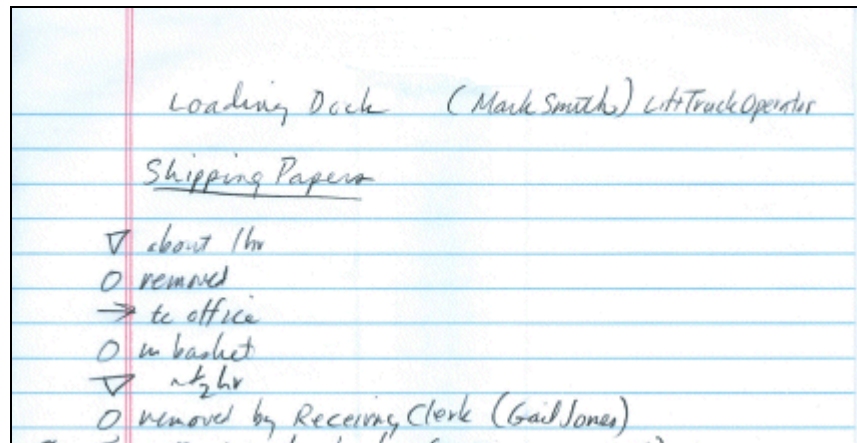 Loading Dock (Mark Smith) Lift Truck Operator
Shipping Papers
▽ about 1hr
O removed
→ to office
O in basket
▽ ~½ hr
O removed by Receiving Clerk (Gail Jones)